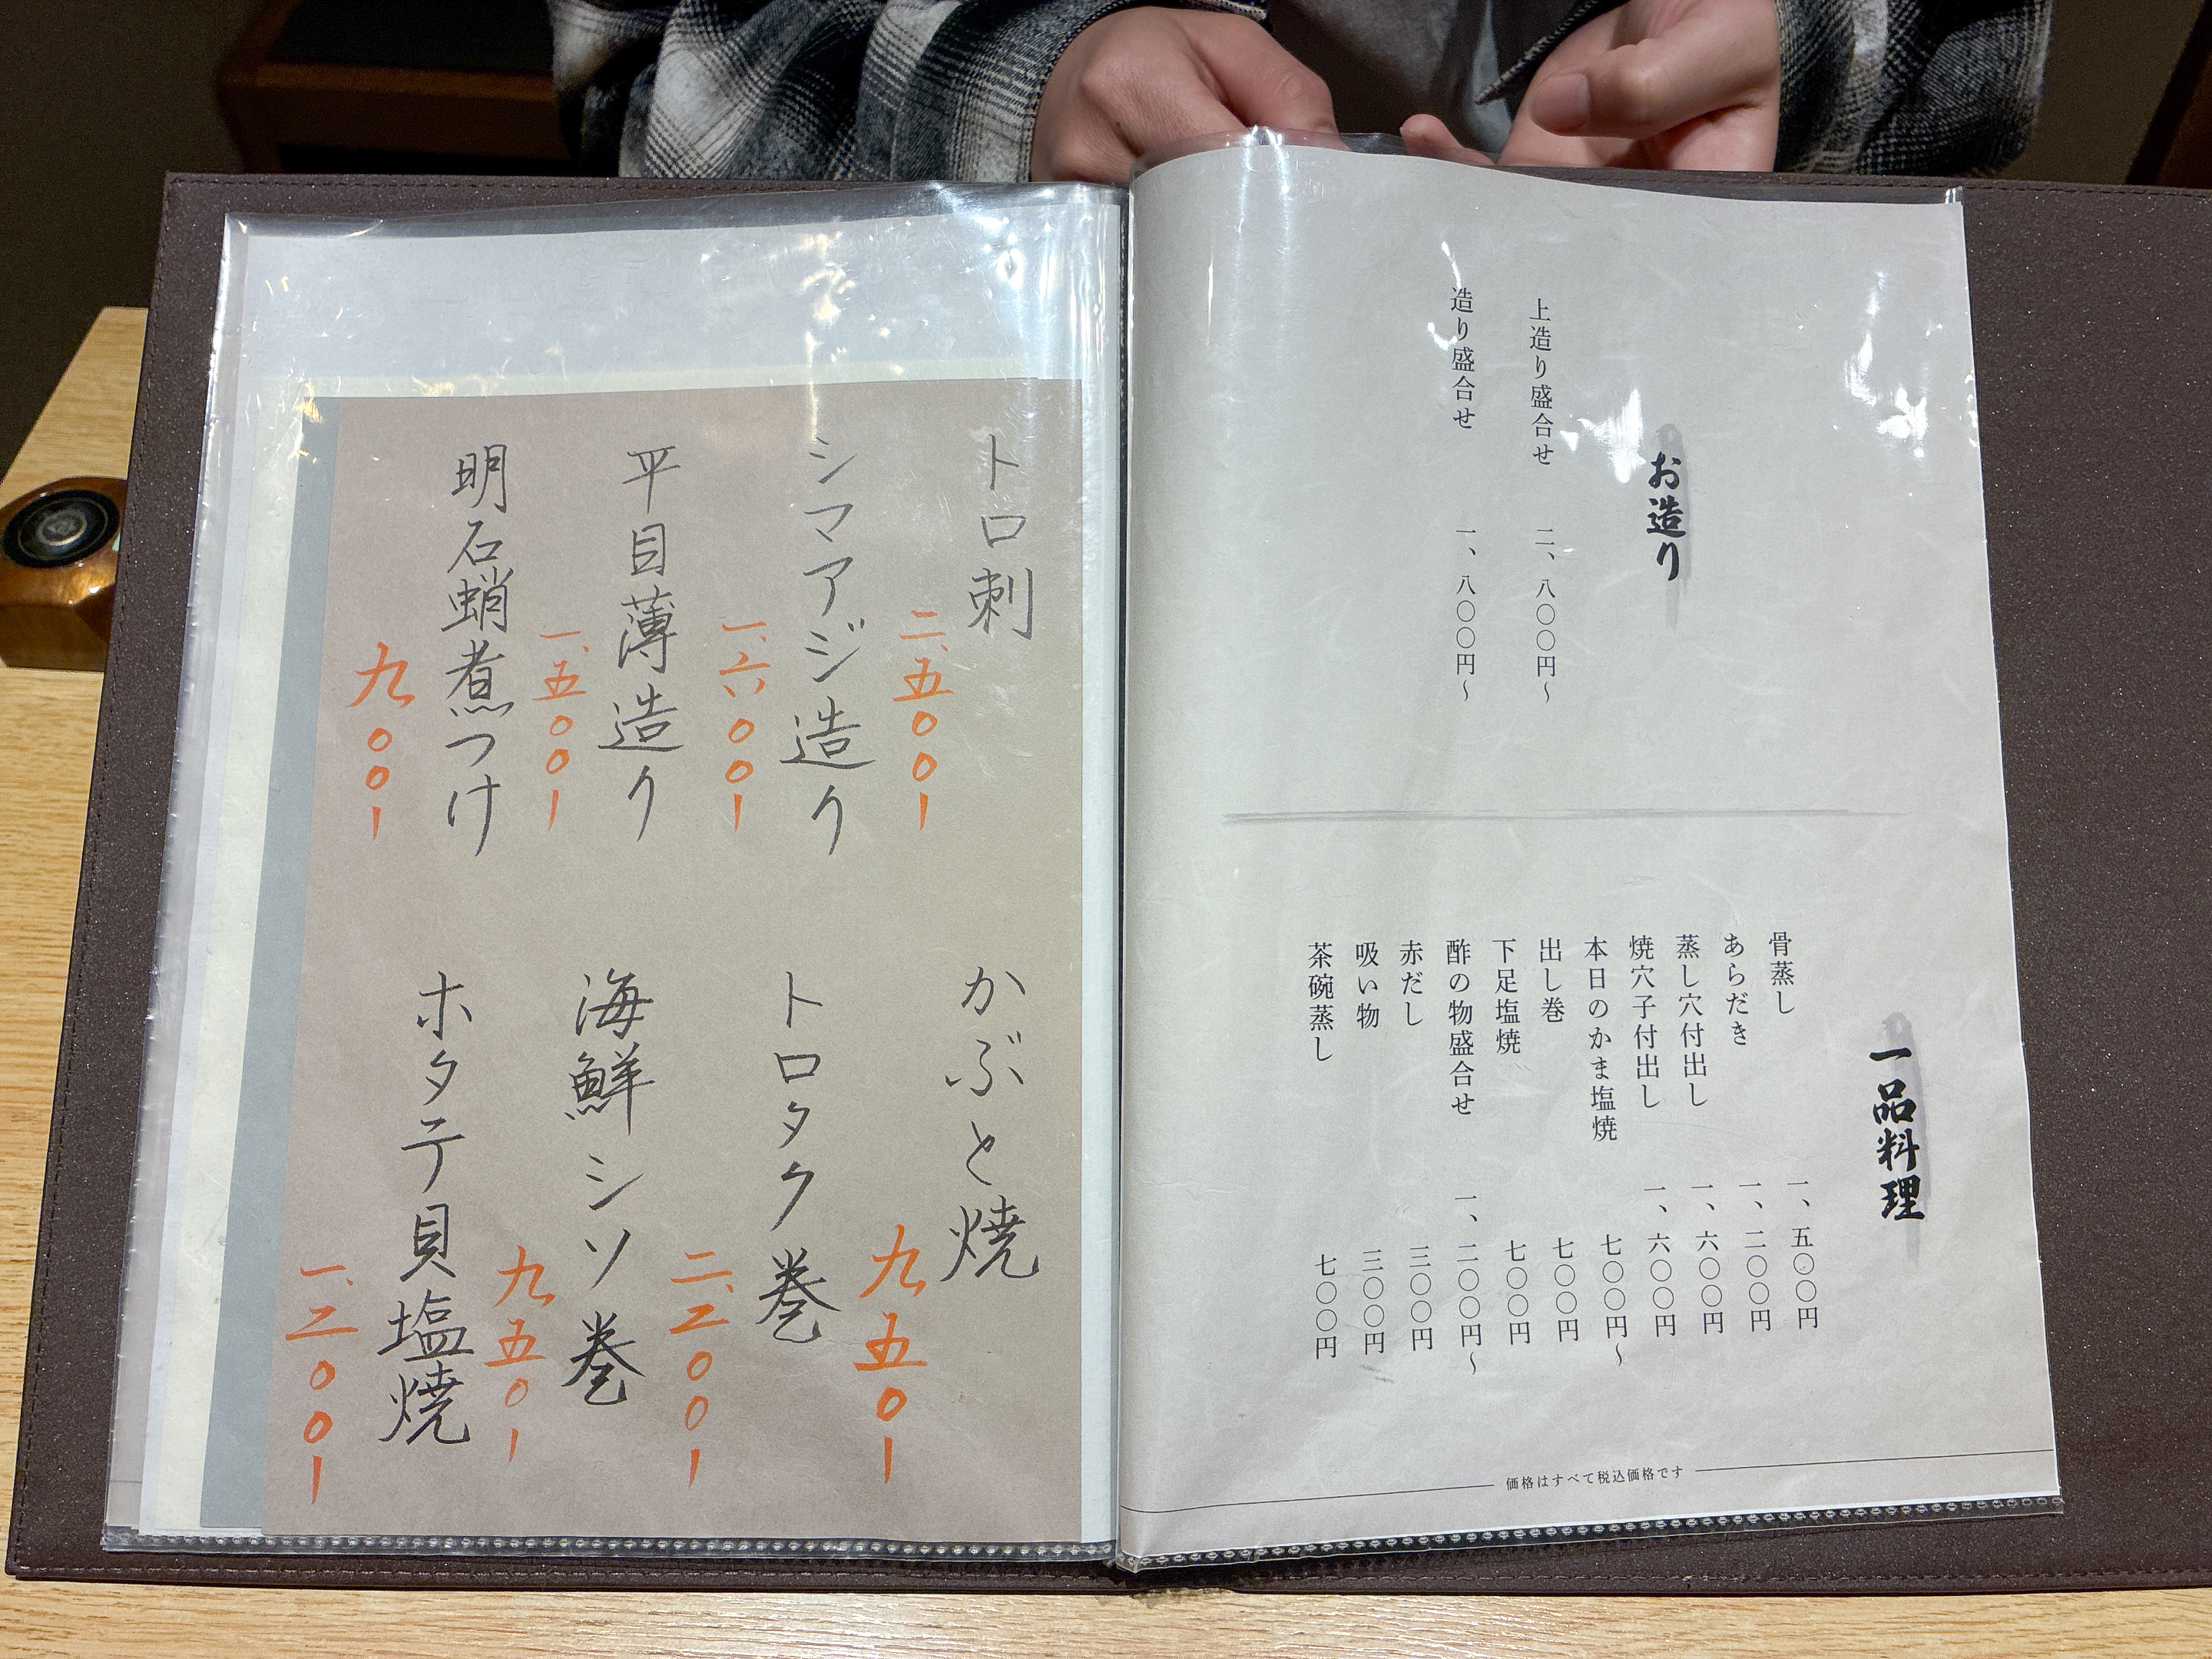 お造り
上造り盛合せ 二、八〇〇円〜
造り盛合せ 一、八〇〇円〜
一品料理
骨蒸し 一、五〇〇円
あらだき 一、二〇〇円
蒸し穴付出し 一、六〇〇円
焼穴子付出し 一、六〇〇円
本日のかま塩焼 七〇〇円〜
出し巻 七〇〇円
下足塩焼 七〇〇円
酢の物盛合せ 一、二〇〇円〜
赤だし 三〇〇円
吸い物 三〇〇円
茶碗蒸し 七〇〇円
価格はすべて税込価格です
トロ刺 二、五〇〇ー
シマアジ造り 一、六〇〇ー
平目薄造り 一、五〇〇ー
明石蛸煮つけ 九〇〇ー
かぶと焼 九五〇ー
トロタク巻 二、二〇〇ー
海鮮シソ巻 九五〇ー
ホタテ貝塩焼 一、二〇〇ー